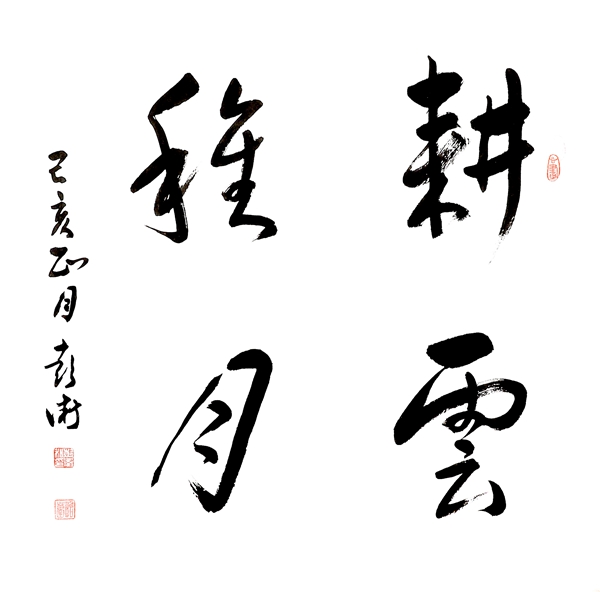 耕雲
種月
己亥正月